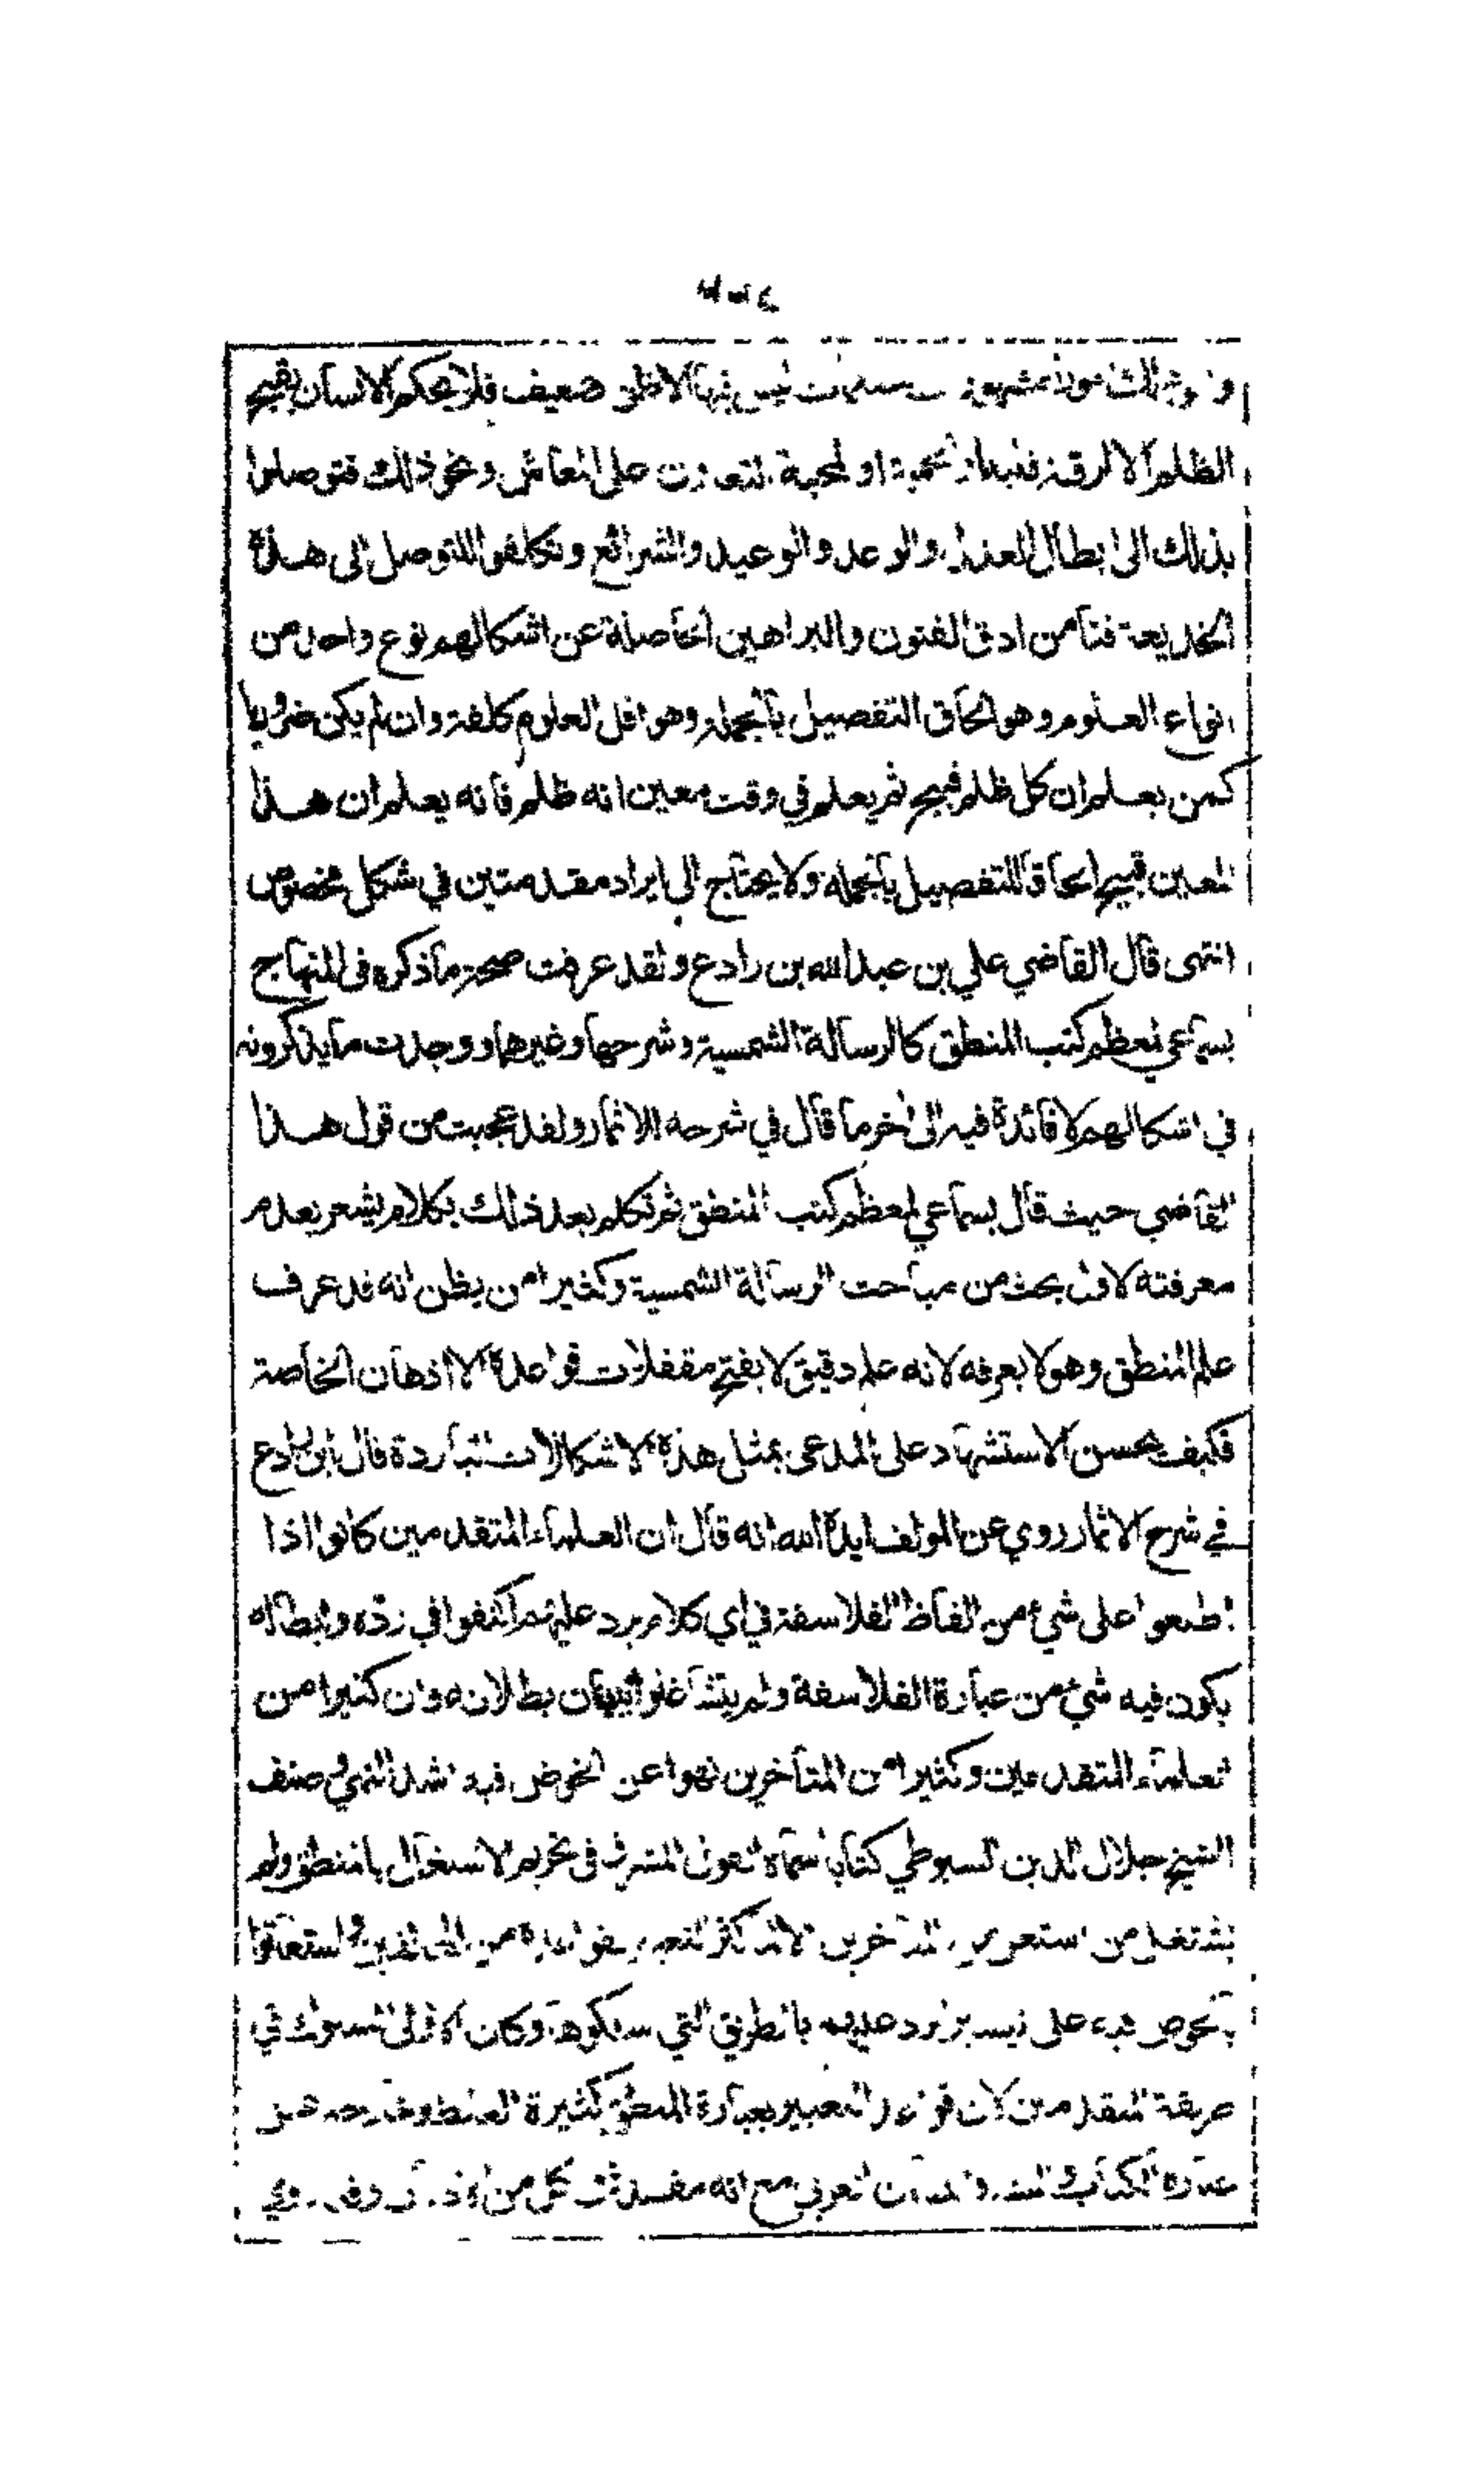 ليس فيها الا ظن ضعيف فلا يحكم الانسان بقبح
الظلم الا لرقة او لمحبة التعاون على المعاش ونحو ذلك فتوصلوا
بذلك الى ابطال العدل والوعد والوعيد والشرائع وتكلفوا للتوصل الى هذة
الخديعة فنا من ادق الفنون والبراهين الحاصلة عن اشكالهم نوع واحد من
انواع العلوم وهو الحاق التفصيل بالجملة وهو اقل العلوم كلفة وان لم يكن ضروريا
كمن يعلم ان كل ظلم قبيح ثم يعلم في وقت معين انه ظلم فانه يعلم ان هذا
المعين قبيح الحاقا للتفصيل بالجملة ولا يحتاج الى ايراد مقدمتين في شكل مخصوص
انتهى قال القاضي علي بن عبد الله بن رادع ولقد عرفت صحة ما ذكره في المنهاج
بسماعي لمعظم كتب المنطق كالرسالة الشمسية وشرحها وغيرهما ووجدت ما يذكرونه
في اشكالهم لا فائدة فيه الى اخر ما قال في شرحه للاثمار ولقد عجبت من قول هذا
القاضي حيث قال بسماعي لمعظم كتب المنطق ثم تكلم بعد ذلك بكلام يشعر بعدم
معرفته لاول بحث من مباحث الرسالة الشمسية وكثيرا من يظن انه قد عرف
علم المنطق وهو لا يعرفه لانه علم دقيق لا يفتح مقفلات قواعدة الا اذهان الخاصة
فكيف يحسن الاستشهاد على المدعى بمثل هذة الاشكالات الباردة قال ابن رادع
في شرح الاثمار روي عن المولف ايدة الله انه قال ان العلماء المتقدمين كانوا اذا
اطلعوا على شيء من الفاظ الفلاسفة في اي كلام يرد عليهم اكتفوا في ردة وابطاله
بكون فيه شيء من عبارة الفلاسفة ولم يتشاغلوا ببيان بطلانه وان كثيرا من
العلماء المتقدمين وكثيرا من المتأخرين نهوا عن الخوض فيه اشد النهي وصنف
الشيخ جلال الدين السيوطي كتابا سماه القول المشرق في تحريم الاشتغال بالمنطق ولم
يشتغل من اشتغل من المتأخرين الا لما كثر التعبير بقواعدة من المخالفين واستعانوا
بالخوض فيه على تيسير الرد عليهم بالطريق التي سلكوها وكان الاولى السلوك في
طريقة المتقدمين لان قواعد التعبير بعبارة المنطق كثيرة الغلط وخارجه عن
عبارة الكتاب والسنة واللسان العربي مع انه مفسدة في كل من